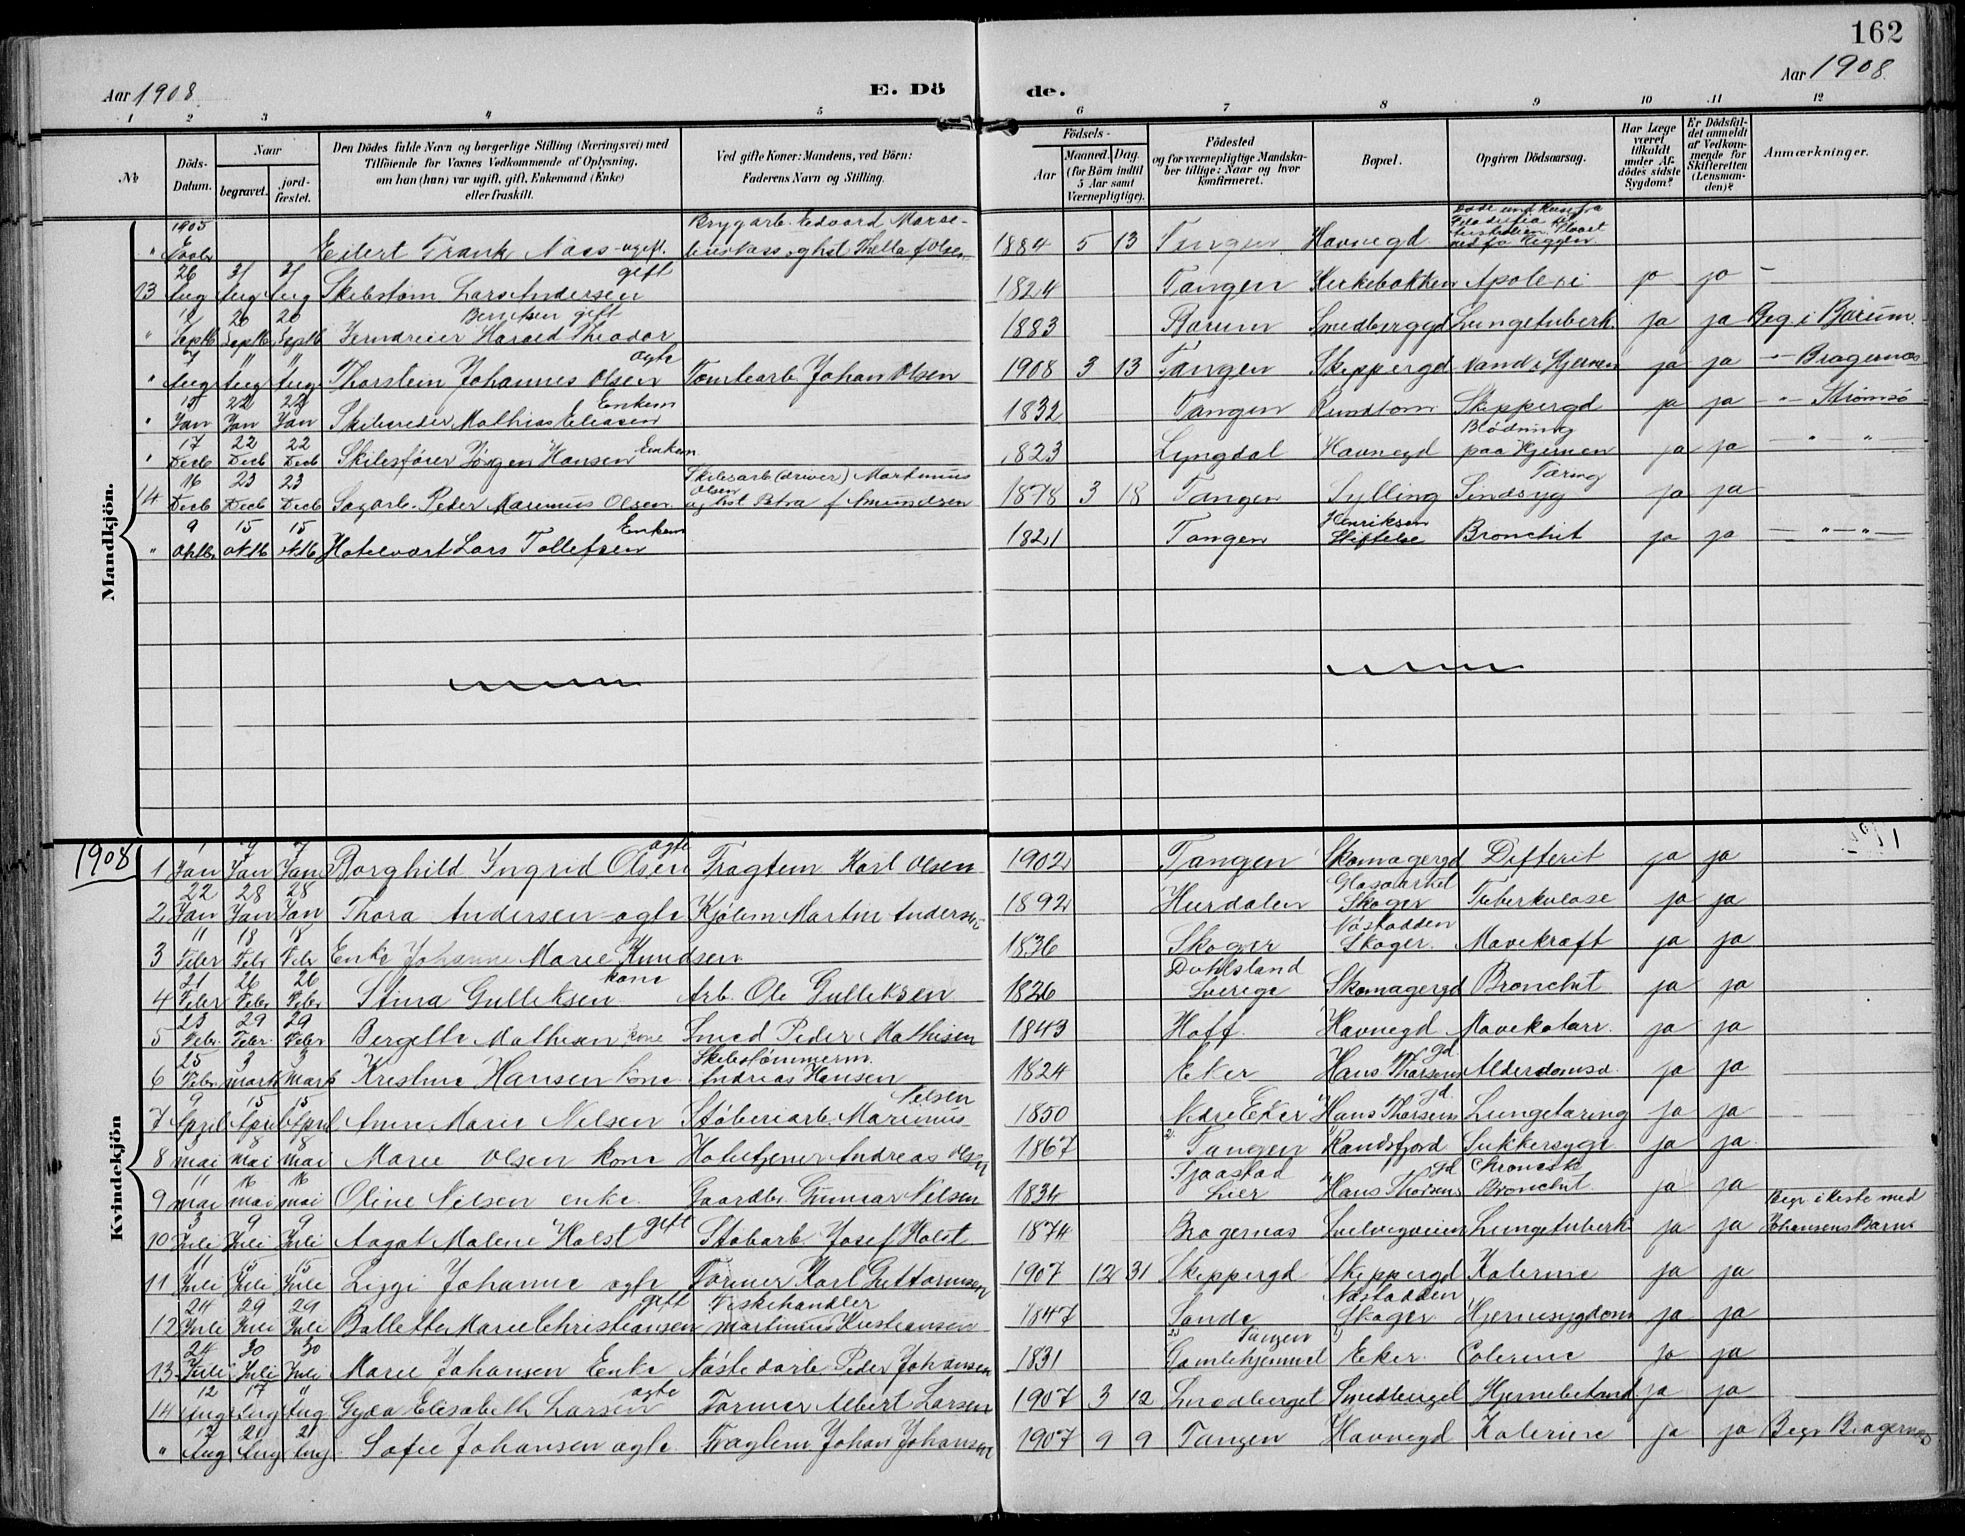 162
Aar 1908.
E. Dö
de.
Aar 1908.
1 2 3 4 5 6 7 8 9 10 11 12
№
Döds-Datum.
Naar
begravet.
jord-fæstet.
Den Dödes fulde Navn og borgerlige Stilling (Næringsvei) med Tilföiende for Voxnes Vedkommende af Oplysning, om han (hun) var ugift, gift, Enkemand (Enke) eller fraskilt.
Ved gifte Koner: Mandens, ved Börn: Faderens Navn og Stilling.
Födsels-
Aar
Maaned. Dag. (for Börn indtil 5 Aar samt Værnepligtige).
Födested og for værnepligtige Mandskaber tillige: Naar og hvor konfirmeret.
Bopæl.
Opgiven Dödsaarsag.
Har Læge været tilkaldt under Afdödes sidste Sygdom?
Er Dödsfaldet anmeldt af Vedkommende for Skifteretten (Lensmanden)?
Anmærkninger.
Mandkjön.
" 1905 Eilert Frank Næss ugift. Brygarb. Edvard 1884 5 13 Tangen Havnegd
13 26 Aug 31 Aug 31 Aug Skibstøm Lars Andersen gift 1824 Tangen Herkebakken Apolexi ja ja —
" Septb 26 Septb 26 Septb Jerndreier Harald Theodor Berntsen gift 1883 Bærum Smedberggd Lungetuberk. ja ja Beg i Bærum.
" 7 Aug " Aug " Aug Thorstein Johannes Olsen ægte Tomtearb Johan Olsen 1908 3 13 Tangen Skippergd Vand i Hjernen ja ja —"— Bragernæs
" 15 Jan 22 Jan 22 Jan Skibsreder Mathias Eliasen Enkem 1832 Tangen Rundtom Skippergd ja ja —"— Strømsø
" 17 Decb 22 Decb 22 Decb Skibsfører Jørgen Hansen Enkem. 1823 Lyngdal Havnegd Blödning paa Hjernen ja ja — " "
14 16 Decb 23 Decb 23 Decb Sagarb. Peder Marinius Olsen Skibsarb (driver) Martinius Olsen og Hst Petra f Amundsen 1878 3 18 Tangen Sylling Sindsyg Tæring ja ja —
" 9 Oktbr 15 oktb 15 oktb Hotelvært Lars Tollefsen Enkem 1821 Tangen Henriksens Stiftelse Bronchit ja ja — " — " —
Kvindekjön
1908
1 Jan Jan 7 Jan Borghild Ingrid Olsen ægte Fragtem Karl Olsen 1902 Tangen Skomagergd Difterit ja ja
2 22 Jan 28 Jan 28 Jan Thora Andersen ægte Kjølem Martin Andersen 1892 Hurdalen Glassarket Skoger Tuberkulose ja ja
3 11 Febr 18 Febr 18 Febr Enke Johanne Marie Knudsen 1836 Skoger Nøstodden Skoger. Mavekræft ja ja
4 21 Febr 26 Febr 26 Febr Stina Gulliksen kone Arb. Ole Gulliksen 1826 Dahlsland Sverige Skomagergd Bronchit ja ja
5 23 Febr. 29 Febr. 29 Febr Bergette Mathisen kone Smed Peder Mathisen 1843 Hoff. Havnegd Mavekatarr. ja ja
6 25 Febr 3 marts 3 marts Kristine Hansen kone Skibstömmerm. Andreas Hansen 1824 Eker Hans Thorsens gd Alderdomss. ja ja
7 9 April 15 April 15 April Anne Marie Nilsen Støberiarb. Marinius Nilsen 1850 Nedre Eker Hans Thorsens gd. Lungetæring ja ja
8 3 mai 8 mai 8 mai Marie Olsen kone Hoteltjener Andreas Olsen 1867 Tangen Randsfjord Sukkersyge ja ja
9 11 mai 16 mai 16 mai Oline Nilsen enke. Gaardbr. Gunnar Nilsen 1834 Sjaastad Lier Hans Thorsens gd Chronisk Bronchit. ja ja
10 3 Juli 9 Juli 9 Juli Aagot Malene Holst gift Støbarb. Josef Holst 1874 Bragernæs Lungetuberk ja ja Begr i Kiste med Johansens Barn
11 11 Juli 15 Juli 15 Juli Lizzi Johanne ægte Former Karl Guttormsen 1907 12 31 Skippergd Skippergd Kolerine ja ja
12 24 Juli 29 Juli 29 Juli Bollette Marie Christiansen gift Fiskehandler Martinius Kristiansen 1847 Sande Nøstodden Skoger Hjernesygdom ja ja
13 24 Juli 30 Juli 30 Juli Marie Johansen Enke Nøstedarb. Peder Johansen 1831 2) Tangen Gamlehjemmet 1) Eker. Colerine ja ja
14 12 Aug 17 Aug " Aug Gyda Elisabeth Larsen ægte Former Albert Larsen 1907 3 12 Smedberget Smedberget Hjernebetænd. ja ja
" 17 Aug 21 Aug 21 Aug Sofie Johansen ægte Fragtem Johan Johansen 1907 9 9 Tangen Havnegd Kolerine ja ja Begr Bragernæs